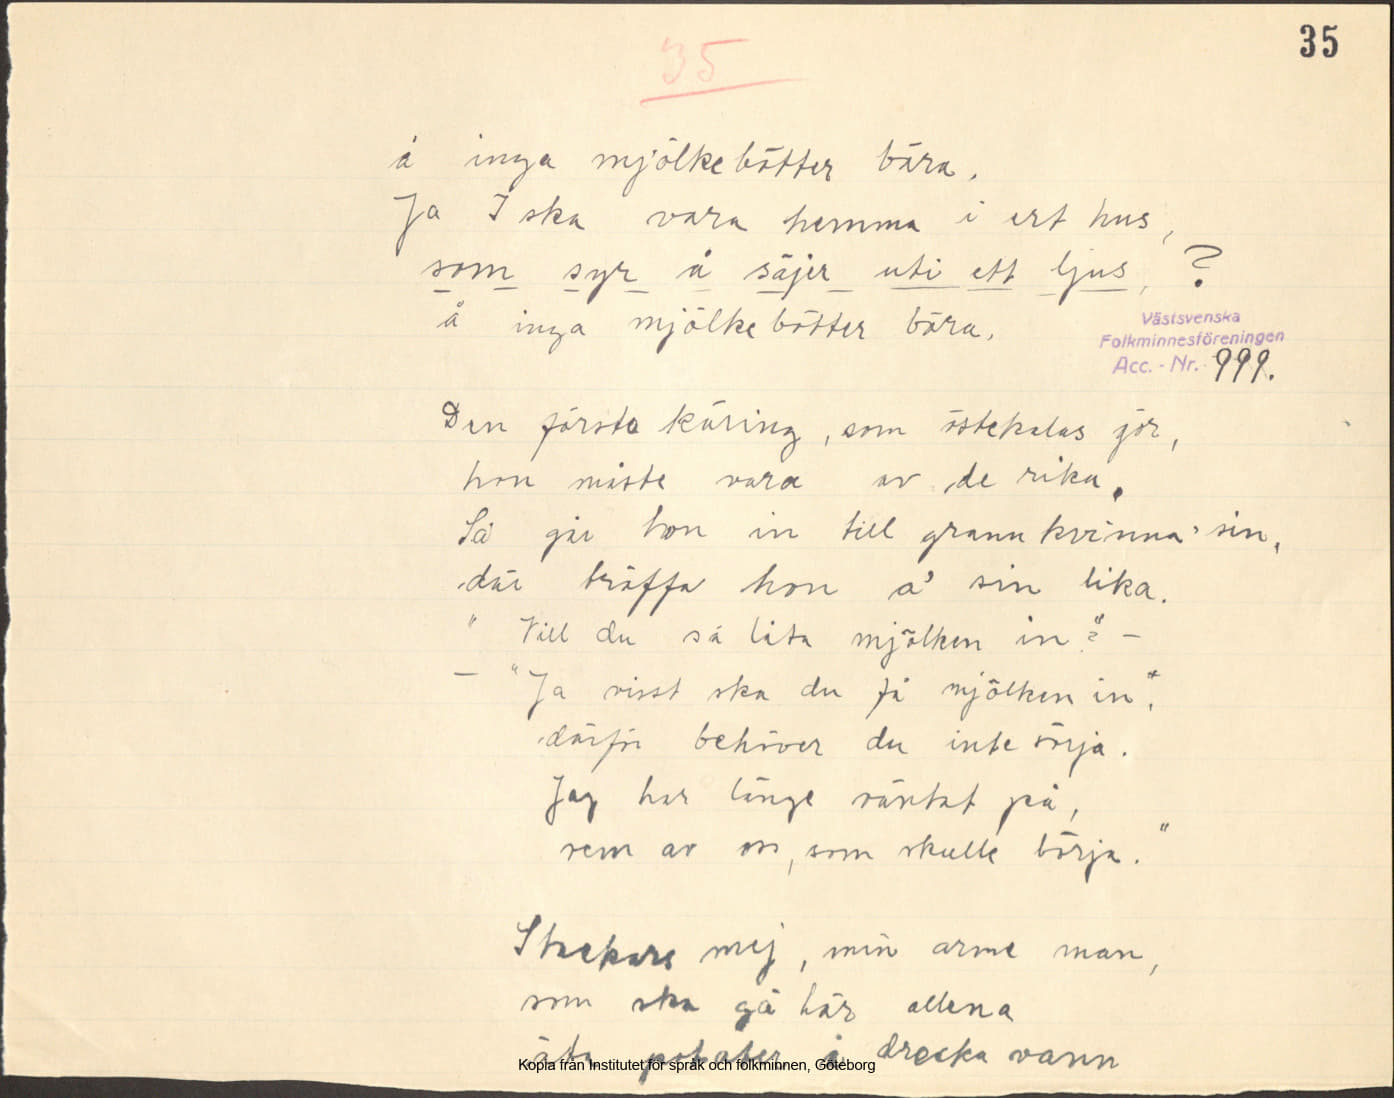 35
35
å inga mjölkebötter bära.
Ja I ska vara hemma i ert hus,
som syr å säjer uti ett ljus, ?
å inga mjölkebötter bära.
Västsvenska
Folkminnesföreningen
Acc. - Nr. 999.
Den första käring, som östekalas gör,
hon måste vara av de rika.
Så går hon in till grannkvinna sin,
där träffa hon å' sin lika.
" Vill du så låta mjölken in"? -
- "Ja visst ska du få mjölken in",
därför behöver du inte sörja.
Jag har länge väntat på,
vem av oss, som skulle börja."
Stackars mej, min arme man,
som ska gå här allena
äta potater å drecka vann
Kopia från Institutet för språk och folkminnen, Göteborg